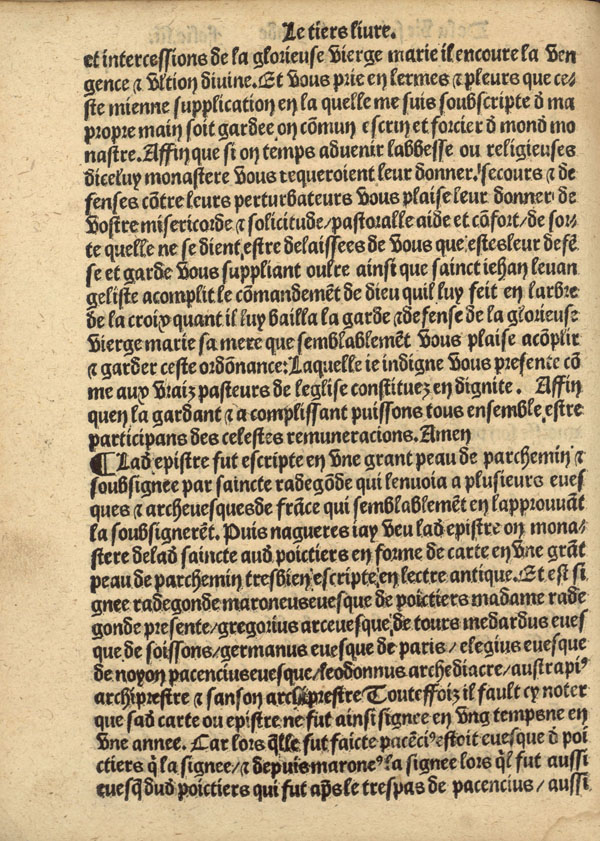 Le tiers liure.
et intercessions de la glorieuse vierge marie il encoure la ven
gence ⁊ vltion diuine. Et vous prie en lermes ⁊ pleurs que ce⸗
ste mienne supplication en la quelle me suis soubscripte d̄ ma
propre main soit gardee on cōmun escrin et forcier d̄ mond mo
nastre. Affin que si on temps aduenir labbesse ou religieuses
diceluy monastere vous requeroient leur donner secours ⁊ de
fenses cōtre leurs perturbateurs vous plaise leur donner de
vostre misericorde ⁊ solicitude/pastoralle aide et cōfort/de sor⸗
te quelle ne se dient estre delaissees de vous que estes leur defē
se et garde vous suppliant oulre ainsi que sainct iehan leuan
geliste acomplit le cōmandemēt de dieu quil luy feit en larbre
de la croix quant il luy bailla la garde ⁊ defense de la glorieuse
vierge marie sa mere que semblablemēt vous plaise acōplir
⁊ garder ceste ordōnance: Laquelle ie indigne vous presente cō
me aux vraiz pasteurs de leglise constituez en dignite. Affin
quen la gardant ⁊ a complissant puissons tous ensemble estre
participans des celestes remuneracions. Amen
¶ Lad epistre fut escripte en vne grant peau de parchemin ⁊
soubsignee par saincte radegōde qui lenuoia a plusieurs eues
ques ⁊ archeuesques de frāce qui semblablemēt en lapprouuāt
la soubsignerēt. Puis nagueres iay veu lad epistre on mona⸗
stere de lad saincte aud poictiers en forme de carte en vne grāt
peau de parchemin tresbien escripte en lectre antique. Et est si
gnee radegonde maroneus euesque de poictiers madame rade
gonde presente/gregorius arceuesque de tours medardus eues
que de soissons/germanus euesque de paris/elegius euesque
de noyon pacencius euesque/leodonnus archediacre/austrapi⁹
archiprestre ⁊ sanson archiprestre Touteffoiz il fault cy noter
que sad carte ou epistre ne fut ainsi signee en vng temps ne en
vne annee. Car lors q̄lle fut faicte pacēci⁹ estoit euesque d̄ poi
ctiers q̄ la signee/⁊ depuis marone⁹ la signee lors q̄l fut aussi
euesq̄ dud poictiers qui fut ap̄s le trespas de pacencius/aussi